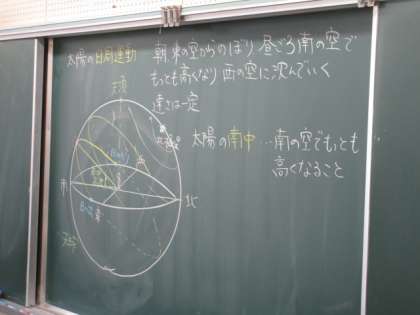 太陽の日周運動
朝 東の空からのぼり 昼ごろ南の空で
もっとも高くなり 西の空に沈んでいく
速さは一定
天頂
太陽の南中…南の空でもっとも
高くなること
南
北